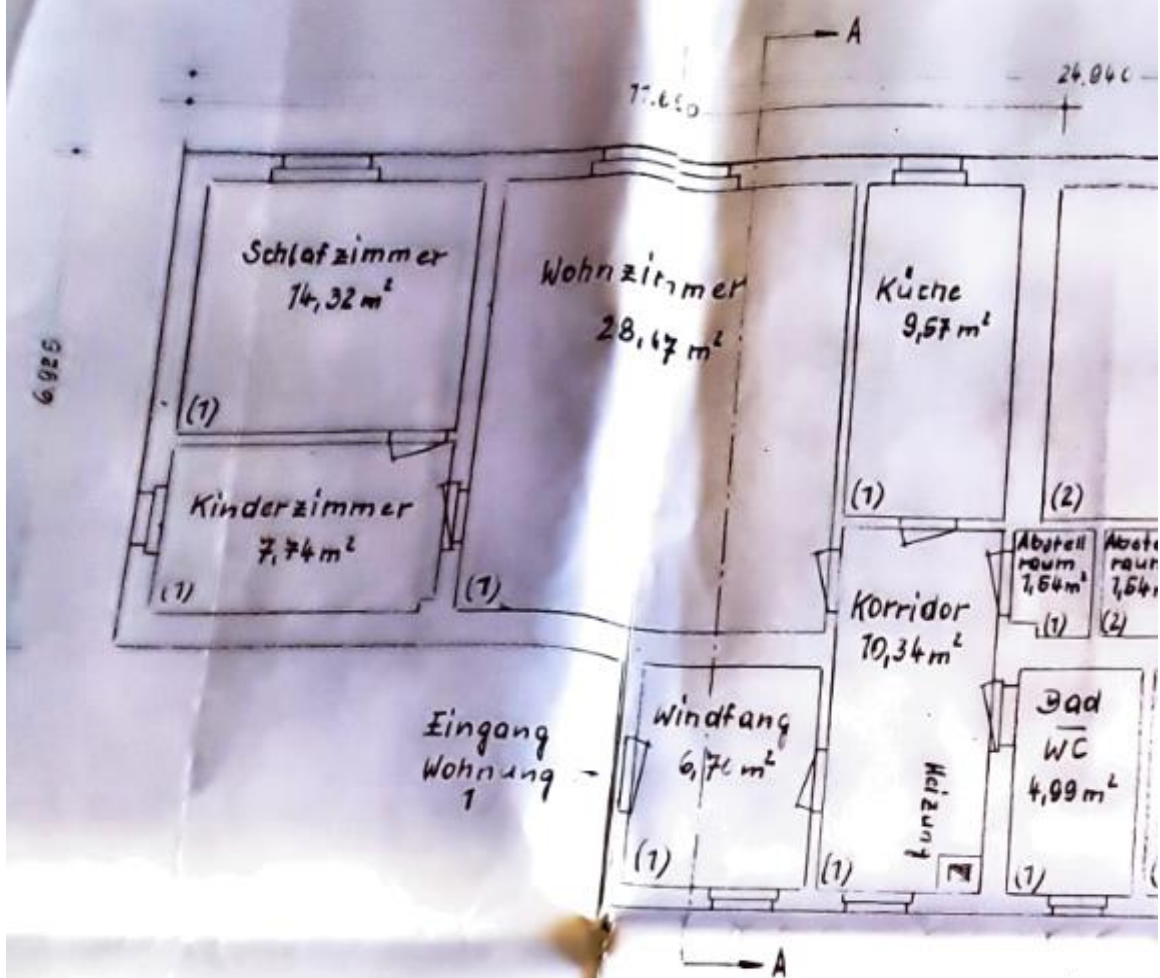 A
24.840
6925
Schlafzimmer
14,32 m²
(1)
Wohnzimmer
28,47 m²
(1)
Küche
9,57 m²
(1)
(2)
Kinderzimmer
7,74 m²
(1)
Abstell
raum
1,54 m²
(1)
raum
(2)
Korridor
10,34 m²
(1)
Heizung
Eingang
Wohnung
1
Windfang
(1)
Bad
WC
4,99 m²
(1)
A